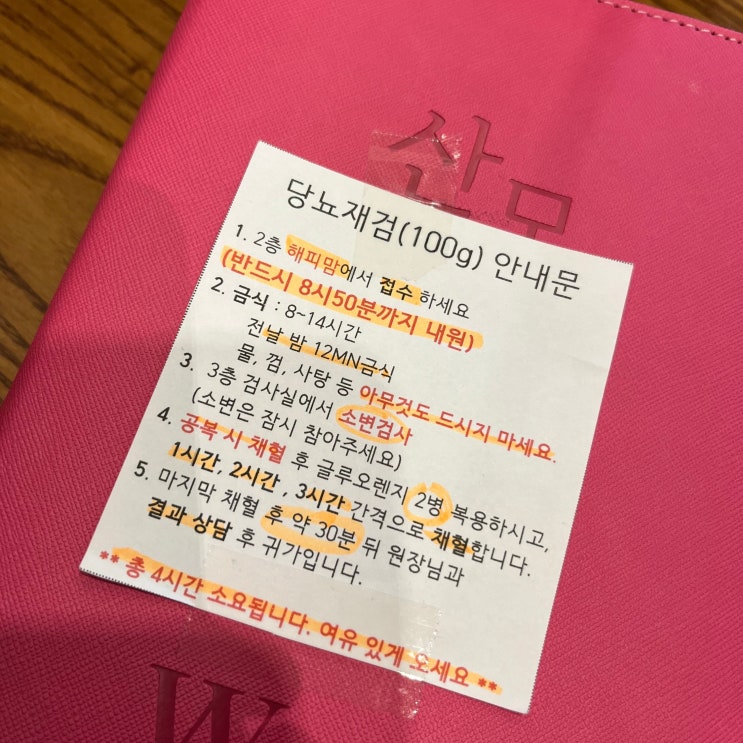 산모
당뇨재검(100g) 안내문
1. 2층 해피맘에서 접수 하세요
(반드시 8시50분까지 내원)
2. 금식 : 8~14시간
전날 밤 12MN금식
물, 껌, 사탕 등 아무것도 드시지 마세요.
3. 3층 검사실에서 소변검사
(소변은 잠시 참아주세요)
4. 공복 시 채혈 후 글루오렌지 2병 복용하시고,
1시간, 2시간 , 3시간 간격으로 채혈합니다.
5. 마지막 채혈 후 약 30분 뒤 원장님과
결과 상담 후 귀가입니다.
** 총 4시간 소요됩니다. 여유 있게 오세요 **
W